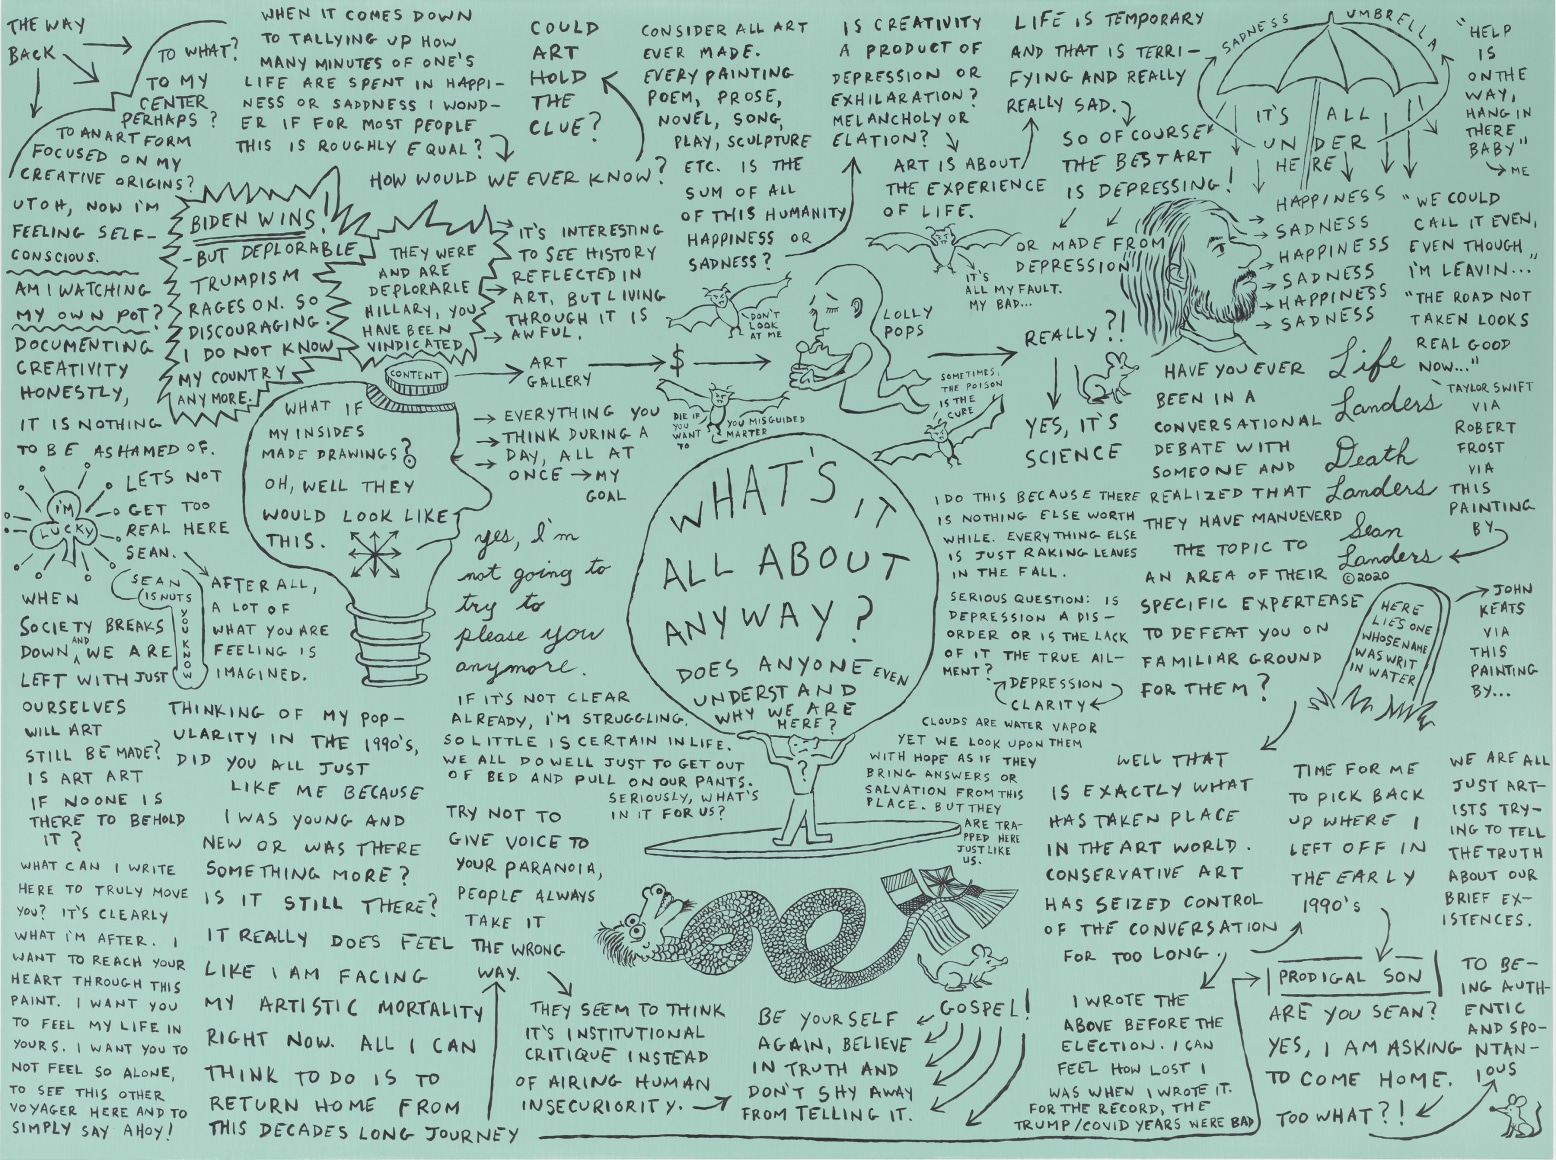 THE WAY
BACK
TO WHAT?
TO MY
CENTER
PERHAPS?
TO AN ART FORM
FOCUSED ON MY
CREATIVE ORIGINS?
UTOH, NOW I'M
FEELING SELF-
CONSCIOUS.
AM I WATCHING
MY OWN POT?
DOCUMENTING
CREATIVITY
HONESTLY,
IT IS NOTHING
TO BE ASHAMED OF.
LETS NOT
GET TOO
REAL HERE
SEAN.
I'M
LUCKY
SEAN
IS NUTS
YOU KNOW
AFTER ALL,
A LOT OF
WHAT YOU ARE
FEELING IS
IMAGINED.
WHEN
SOCIETY BREAKS
DOWN AND WE ARE
LEFT WITH JUST
OURSELVES
WILL ART
STILL BE MADE?
IS ART ART
IF NO ONE IS
THERE TO BEHOLD
IT?
WHAT CAN I WRITE
HERE TO TRULY MOVE
YOU? IT'S CLEARLY
WHAT I'M AFTER. I
WANT TO REACH YOUR
HEART THROUGH THIS
PAINT. I WANT YOU
TO FEEL MY LIFE IN
YOURS. I WANT YOU TO
NOT FEEL SO ALONE,
TO SEE THIS OTHER
VOYAGER HERE AND TO
SIMPLY SAY AHOY!
WHEN IT COMES DOWN
TO TALLYING UP HOW
MANY MINUTES OF ONE'S
LIFE ARE SPENT IN HAPPI-
NESS OR SADDNESS I WOND-
ER IF FOR MOST PEOPLE
THIS IS ROUGHLY EQUAL?
HOW WOULD WE EVER KNOW?
COULD
ART
HOLD
THE
CLUE?
BIDEN WINS!
-BUT DEPLORABLE
TRUMPISM
RAGES ON. SO
DISCOURAGING.
I DO NOT KNOW
MY COUNTRY
ANY MORE.
THEY WERE
AND ARE
DEPLORABLE
HILLARY, YOU
HAVE BEEN
VINDICATED
IT'S INTERESTING
TO SEE HISTORY
REFLECTED IN
ART, BUT LIVING
THROUGH IT IS
AWFUL.
CONTENT
ART
GALLERY
$
LOLLY
POPS
REALLY?!
YES, IT'S
SCIENCE
WHAT IF
MY INSIDES
MADE DRAWINGS?
OH, WELL THEY
WOULD LOOK LIKE
THIS.
EVERYTHING YOU
THINK DURING A
DAY, ALL AT
ONCE → MY
GOAL
yes, I'm
not going to
try to
please you
anymore.
THINKING OF MY POP-
ULARITY IN THE 1990'S,
DID YOU ALL JUST
LIKE ME BECAUSE
I WAS YOUNG AND
NEW OR WAS THERE
SOMETHING MORE?
IS IT STILL THERE?
IT REALLY DOES FEEL
LIKE I AM FACING
MY ARTISTIC MORTALITY
RIGHT NOW. ALL I CAN
THINK TO DO IS TO
RETURN HOME FROM
THIS DECADES LONG JOURNEY
IF IT'S NOT CLEAR
ALREADY, I'M STRUGGLING.
SO LITTLE IS CERTAIN IN LIFE.
WE ALL DO WELL JUST TO GET OUT
OF BED AND PULL ON OUR PANTS.
SERIOUSLY, WHAT'S
IN IT FOR US?
TRY NOT TO
GIVE VOICE TO
YOUR PARANOIA,
PEOPLE ALWAYS
TAKE IT
THE WRONG
WAY.
THEY SEEM TO THINK
IT'S INSTITUTIONAL
CRITIQUE INSTEAD
OF AIRING HUMAN
INSECURIORITY.
BE YOURSELF
AGAIN, BELIEVE
IN TRUTH AND
DON'T SHY AWAY
FROM TELLING IT.
GOSPEL!
CONSIDER ALL ART
EVER MADE.
EVERY PAINTING
POEM, PROSE,
NOVEL, SONG,
PLAY, SCULPTURE
ETC. IS THE
SUM OF ALL
OF THIS HUMANITY
HAPPINESS OR
SADNESS?
IS CREATIVITY
A PRODUCT OF
DEPRESSION OR
EXHILARATION?
MELANCHOLY OR
ELATION?
ART IS ABOUT
THE EXPERIENCE
OF LIFE.
LIFE IS TEMPORARY
AND THAT IS TERRI-
FYING AND REALLY
REALLY SAD.
SO OF COURSE
THE BEST ART
IS DEPRESSING!
OR MADE FROM
DEPRESSION
IT'S
ALL MY FAULT.
MY BAD...
DON'T
LOOK
AT ME
DIE IF
YOU
WANT
TO
YOU MISGUIDED
MARTER
SOMETIMES,
THE POISON
IS THE
CURE
WHAT'S IT
ALL ABOUT
ANYWAY?
DOES ANYONE EVEN
UNDERSTAND
WHY WE ARE
HERE?
?
I DO THIS BECAUSE THERE
IS NOTHING ELSE WORTH
WHILE. EVERYTHING ELSE
IS JUST RAKING LEAVES
IN THE FALL.
SERIOUS QUESTION: IS
DEPRESSION A DIS-
ORDER OR IS THE LACK
OF IT THE TRUE AIL-
MENT?
DEPRESSION
CLARITY
CLOUDS ARE WATER VAPOR
YET WE LOOK UPON THEM
WITH HOPE AS IF THEY
BRING ANSWERS OR
SALVATION FROM THIS
PLACE. BUT THEY
ARE TRA-
PPED HERE
JUST LIKE
US.
SADNESS UMBRELLA
IT'S ALL
UNDER
HERE
HAPPINESS
SADNESS
HAPPINESS
SADNESS
HAPPINESS
SADNESS
"HELP
IS
ON THE
WAY,
HANG IN
THERE
BABY"
ME
"WE COULD
CALL IT EVEN,
EVEN THOUGH
I'M LEAVIN..."
"THE ROAD NOT
TAKEN LOOKS
REAL GOOD
NOW..."
TAYLOR SWIFT
VIA
ROBERT
FROST
VIA
THIS
PAINTING
BY
Life
Landers
Death
Landers
Sean
Landers
©2020
HAVE YOU EVER
BEEN IN A
CONVERSATIONAL
DEBATE WITH
SOMEONE AND
REALIZED THAT
THEY HAVE MANUEVERD
THE TOPIC TO
AN AREA OF THEIR
SPECIFIC EXPERTEASE
TO DEFEAT YOU ON
FAMILIAR GROUND
FOR THEM?
HERE
LIES ONE
WHOSE NAME
WAS WRIT
IN WATER
JOHN
KEATS
VIA
THIS
PAINTING
BY...
WELL THAT
IS EXACTLY WHAT
HAS TAKEN PLACE
IN THE ART WORLD.
CONSERVATIVE ART
HAS SEIZED CONTROL
OF THE CONVERSATION
FOR TOO LONG.
I WROTE THE
ABOVE BEFORE THE
ELECTION. I CAN
FEEL HOW LOST I
WAS WHEN I WROTE IT.
FOR THE RECORD, THE
TRUMP/COVID YEARS WERE BAD
TIME FOR ME
TO PICK BACK
UP WHERE I
LEFT OFF IN
THE EARLY
1990's
PRODIGAL SON
ARE YOU SEAN?
YES, I AM ASKING
TO COME HOME.
TOO WHAT?!
WE ARE ALL
JUST ART-
ISTS TRY-
ING TO TELL
THE TRUTH
ABOUT OUR
BRIEF EX-
ISTENCES.
TO BE-
ING AUTH-
ENTIC
AND SPO-
NTAN-
IOUS